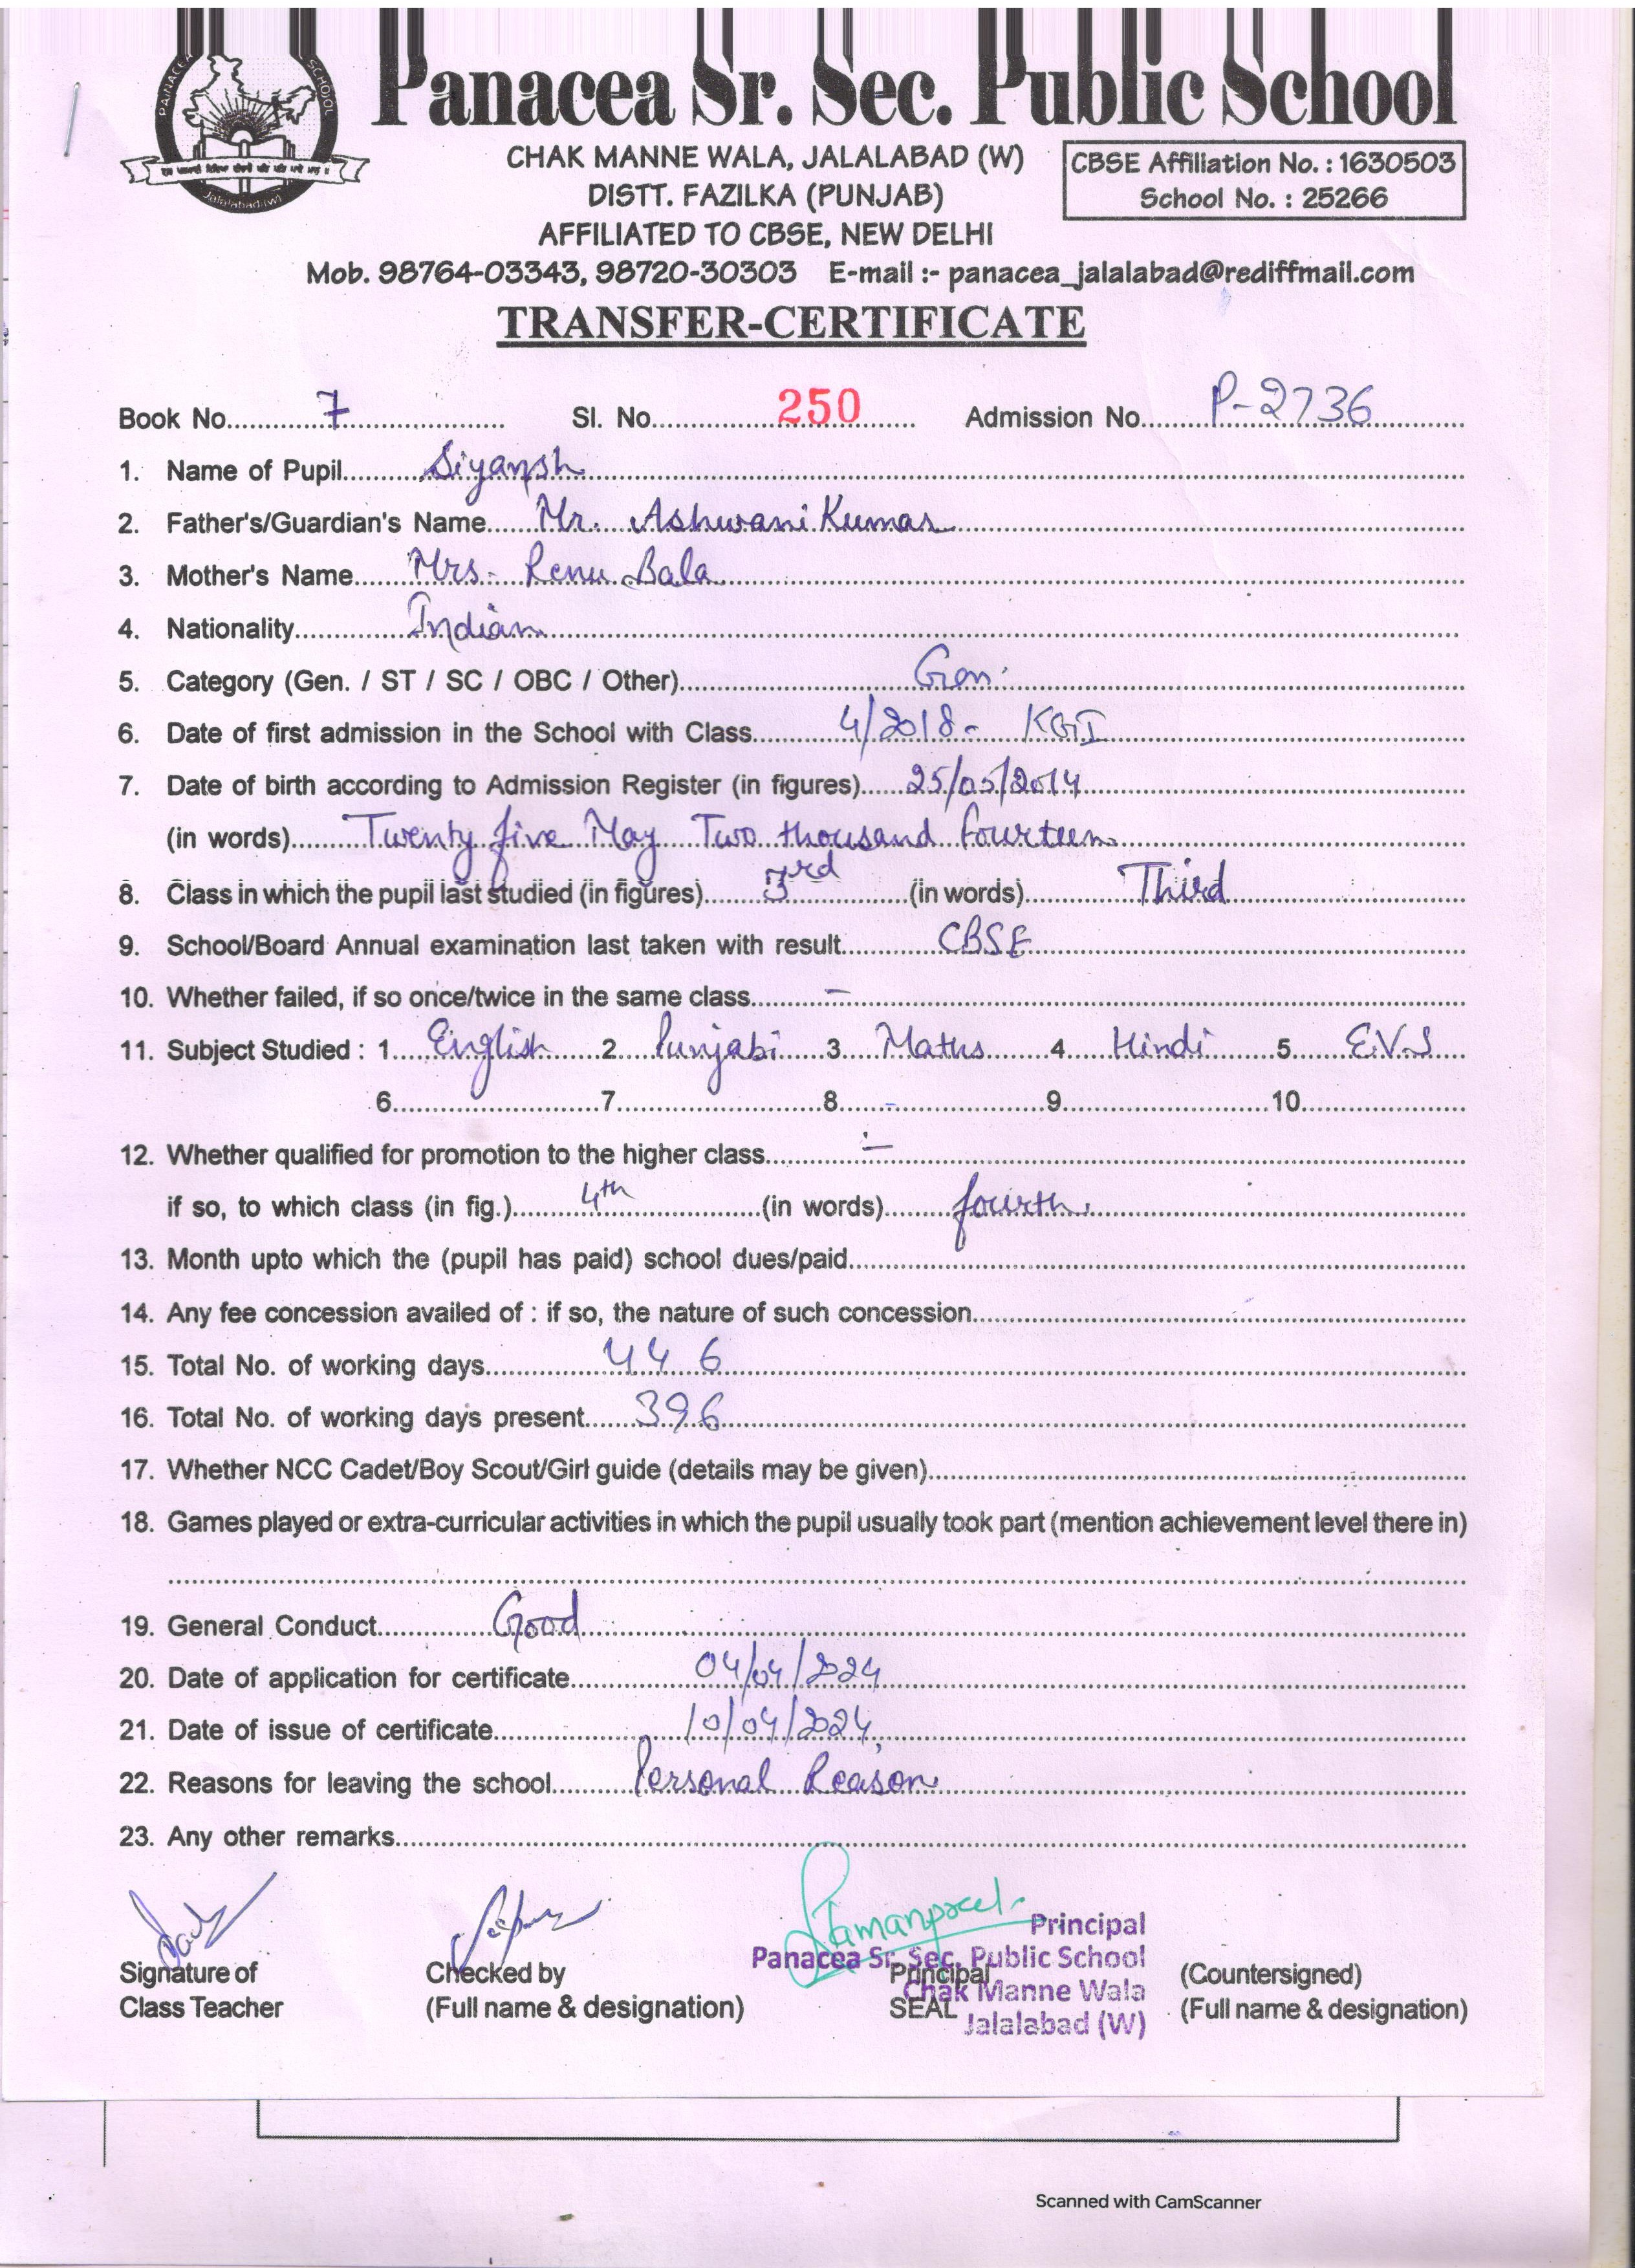 PANACEA SCHOOL
Jalalabad (w)
Panacea Sr. Sec. Public School
CHAK MANNE WALA, JALALABAD (W)
DISTT. FAZILKA (PUNJAB)
AFFILIATED TO CBSE, NEW DELHI
CBSE Affiliation No. : 1630503
School No. : 25266
Mob. 98764-03343, 98720-30303 E-mail :- panacea_jalalabad@rediffmail.com
TRANSFER-CERTIFICATE
Book No. 7 Sl. No. 250 Admission No. P-2736
1. Name of Pupil Siyansh
2. Father's/Guardian's Name Mr. Ashwani Kumar
3. Mother's Name Mrs. Renu Bala
4. Nationality Indian
5. Category (Gen. / ST / SC / OBC / Other) Gen.
6. Date of first admission in the School with Class 4/2018 - KGI
7. Date of birth according to Admission Register (in figures) 25/05/2014
(in words) Twenty five May Two thousand fourteen
8. Class in which the pupil last studied (in figures) 3rd (in words) Third
9. School/Board Annual examination last taken with result CBSE
10. Whether failed, if so once/twice in the same class -
11. Subject Studied : 1 English 2 Punjabi 3 Maths 4 Hindi 5 E.V.S
6 7 8 9 10
12. Whether qualified for promotion to the higher class :-
if so, to which class (in fig.) 4th (in words) fourth
13. Month upto which the (pupil has paid) school dues/paid
14. Any fee concession availed of : if so, the nature of such concession
15. Total No. of working days 446
16. Total No. of working days present 396
17. Whether NCC Cadet/Boy Scout/Girl guide (details may be given)
18. Games played or extra-curricular activities in which the pupil usually took part (mention achievement level there in)
19. General Conduct Good
20. Date of application for certificate 04/04/2024
21. Date of issue of certificate 10/04/2024
22. Reasons for leaving the school Personal Reason
23. Any other remarks
Principal
Panacea Sr. Sec. Public School
Chak Manne Wala
Jalalabad (W)
Signature of Checked by Principal (Countersigned)
Class Teacher (Full name & designation) SEAL (Full name & designation)
Scanned with CamScanner